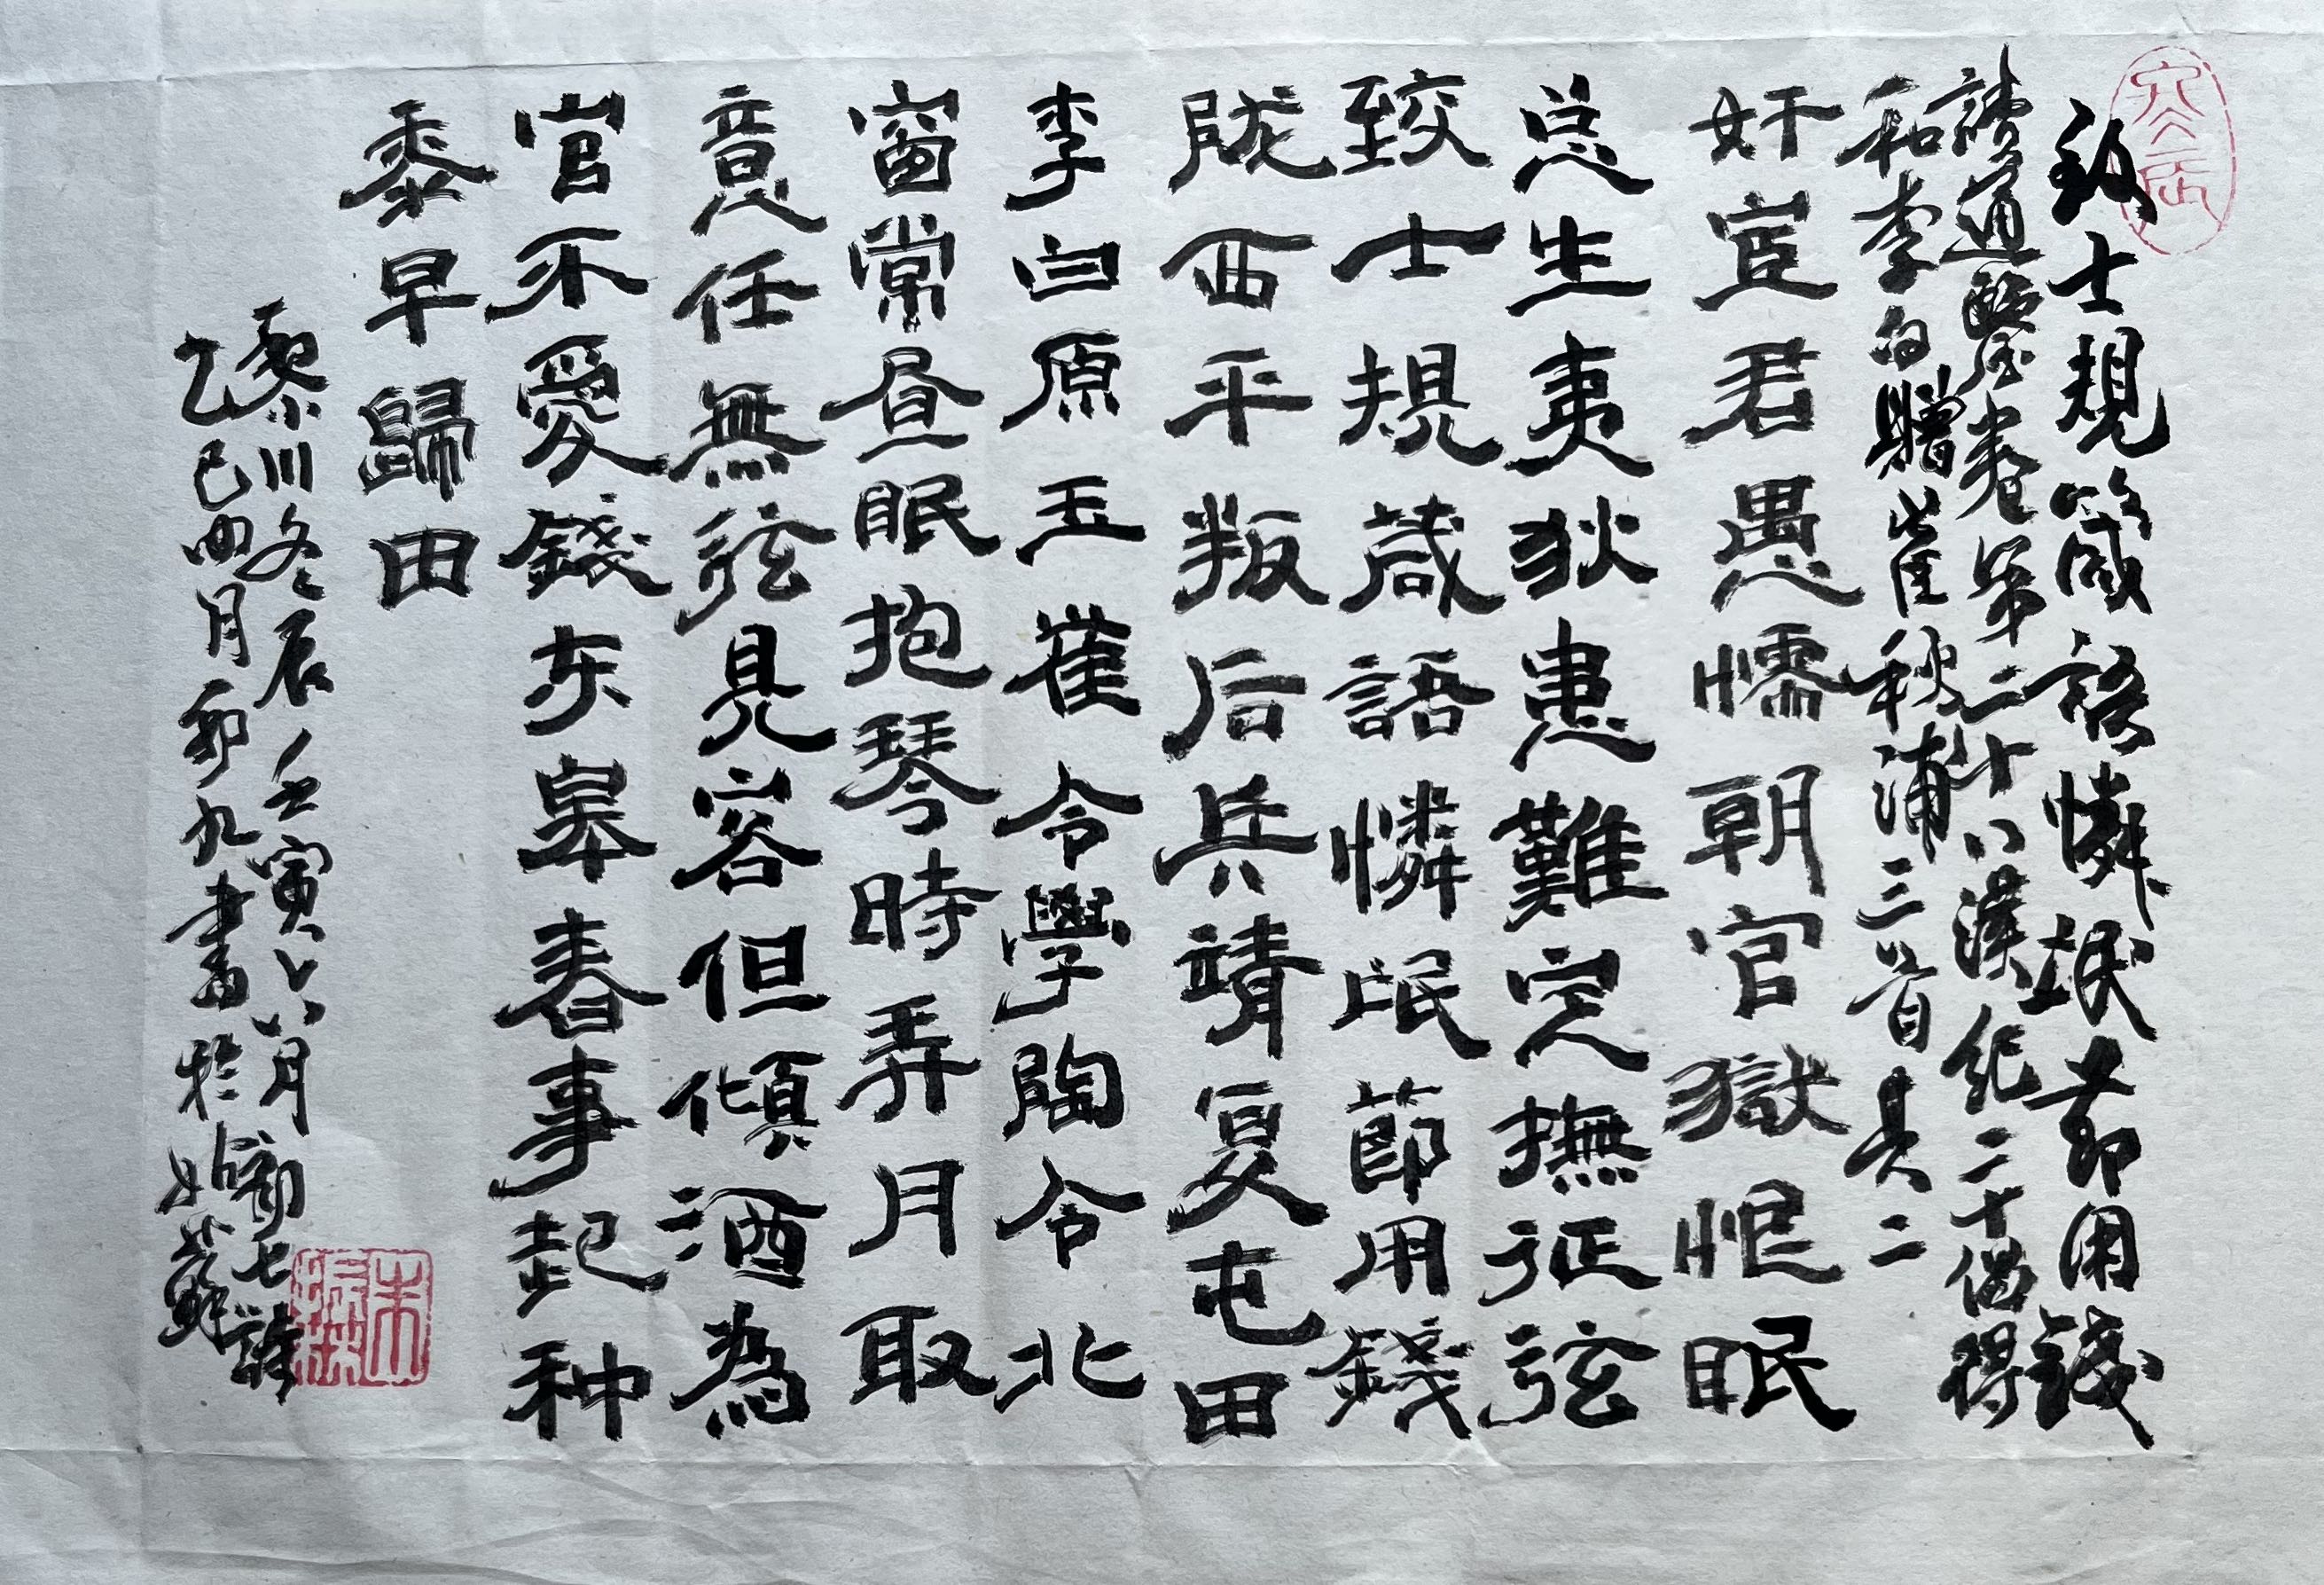 致士規箴語憐氓節用錢
讀通鑒卷第二十八漢紀二十偶得
和李白贈崔秋浦三首其二
奸宦君愚懦朝官獄恨眠
怨生夷狄患難定撫征弦
致士規箴語憐氓節用錢
隴西平叛后兵靖夏屯田
李白原玉崔令學陶令北
窗常昼眠抱琴時弄月取
意任無弦見客但傾酒為
官不愛錢东皋春事起种
黍早歸田
黎川冬辰壬寅六月初七詩
乙巳四月初九書於姑蘇